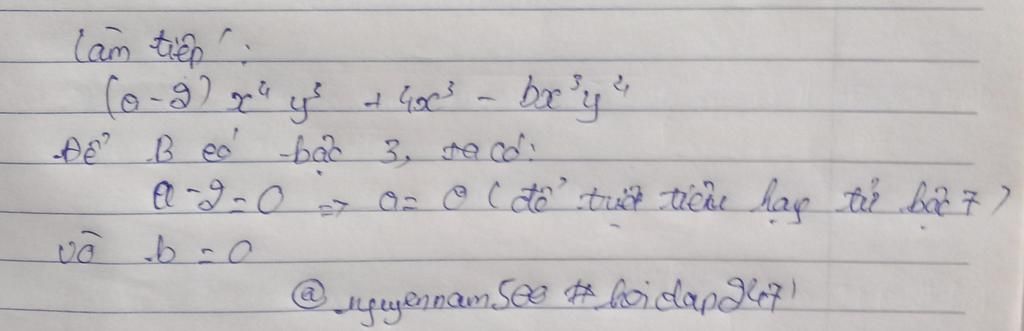 Làm tiếp:
(a-2) x⁴ y³ + 4x³ - bx³y⁴
Để B có bậc 3, ta có:
a-2=0 => a= (để triệt tiêu hạng tử bậc 7)
và b = 0
@nguyennam500 #hoidap247